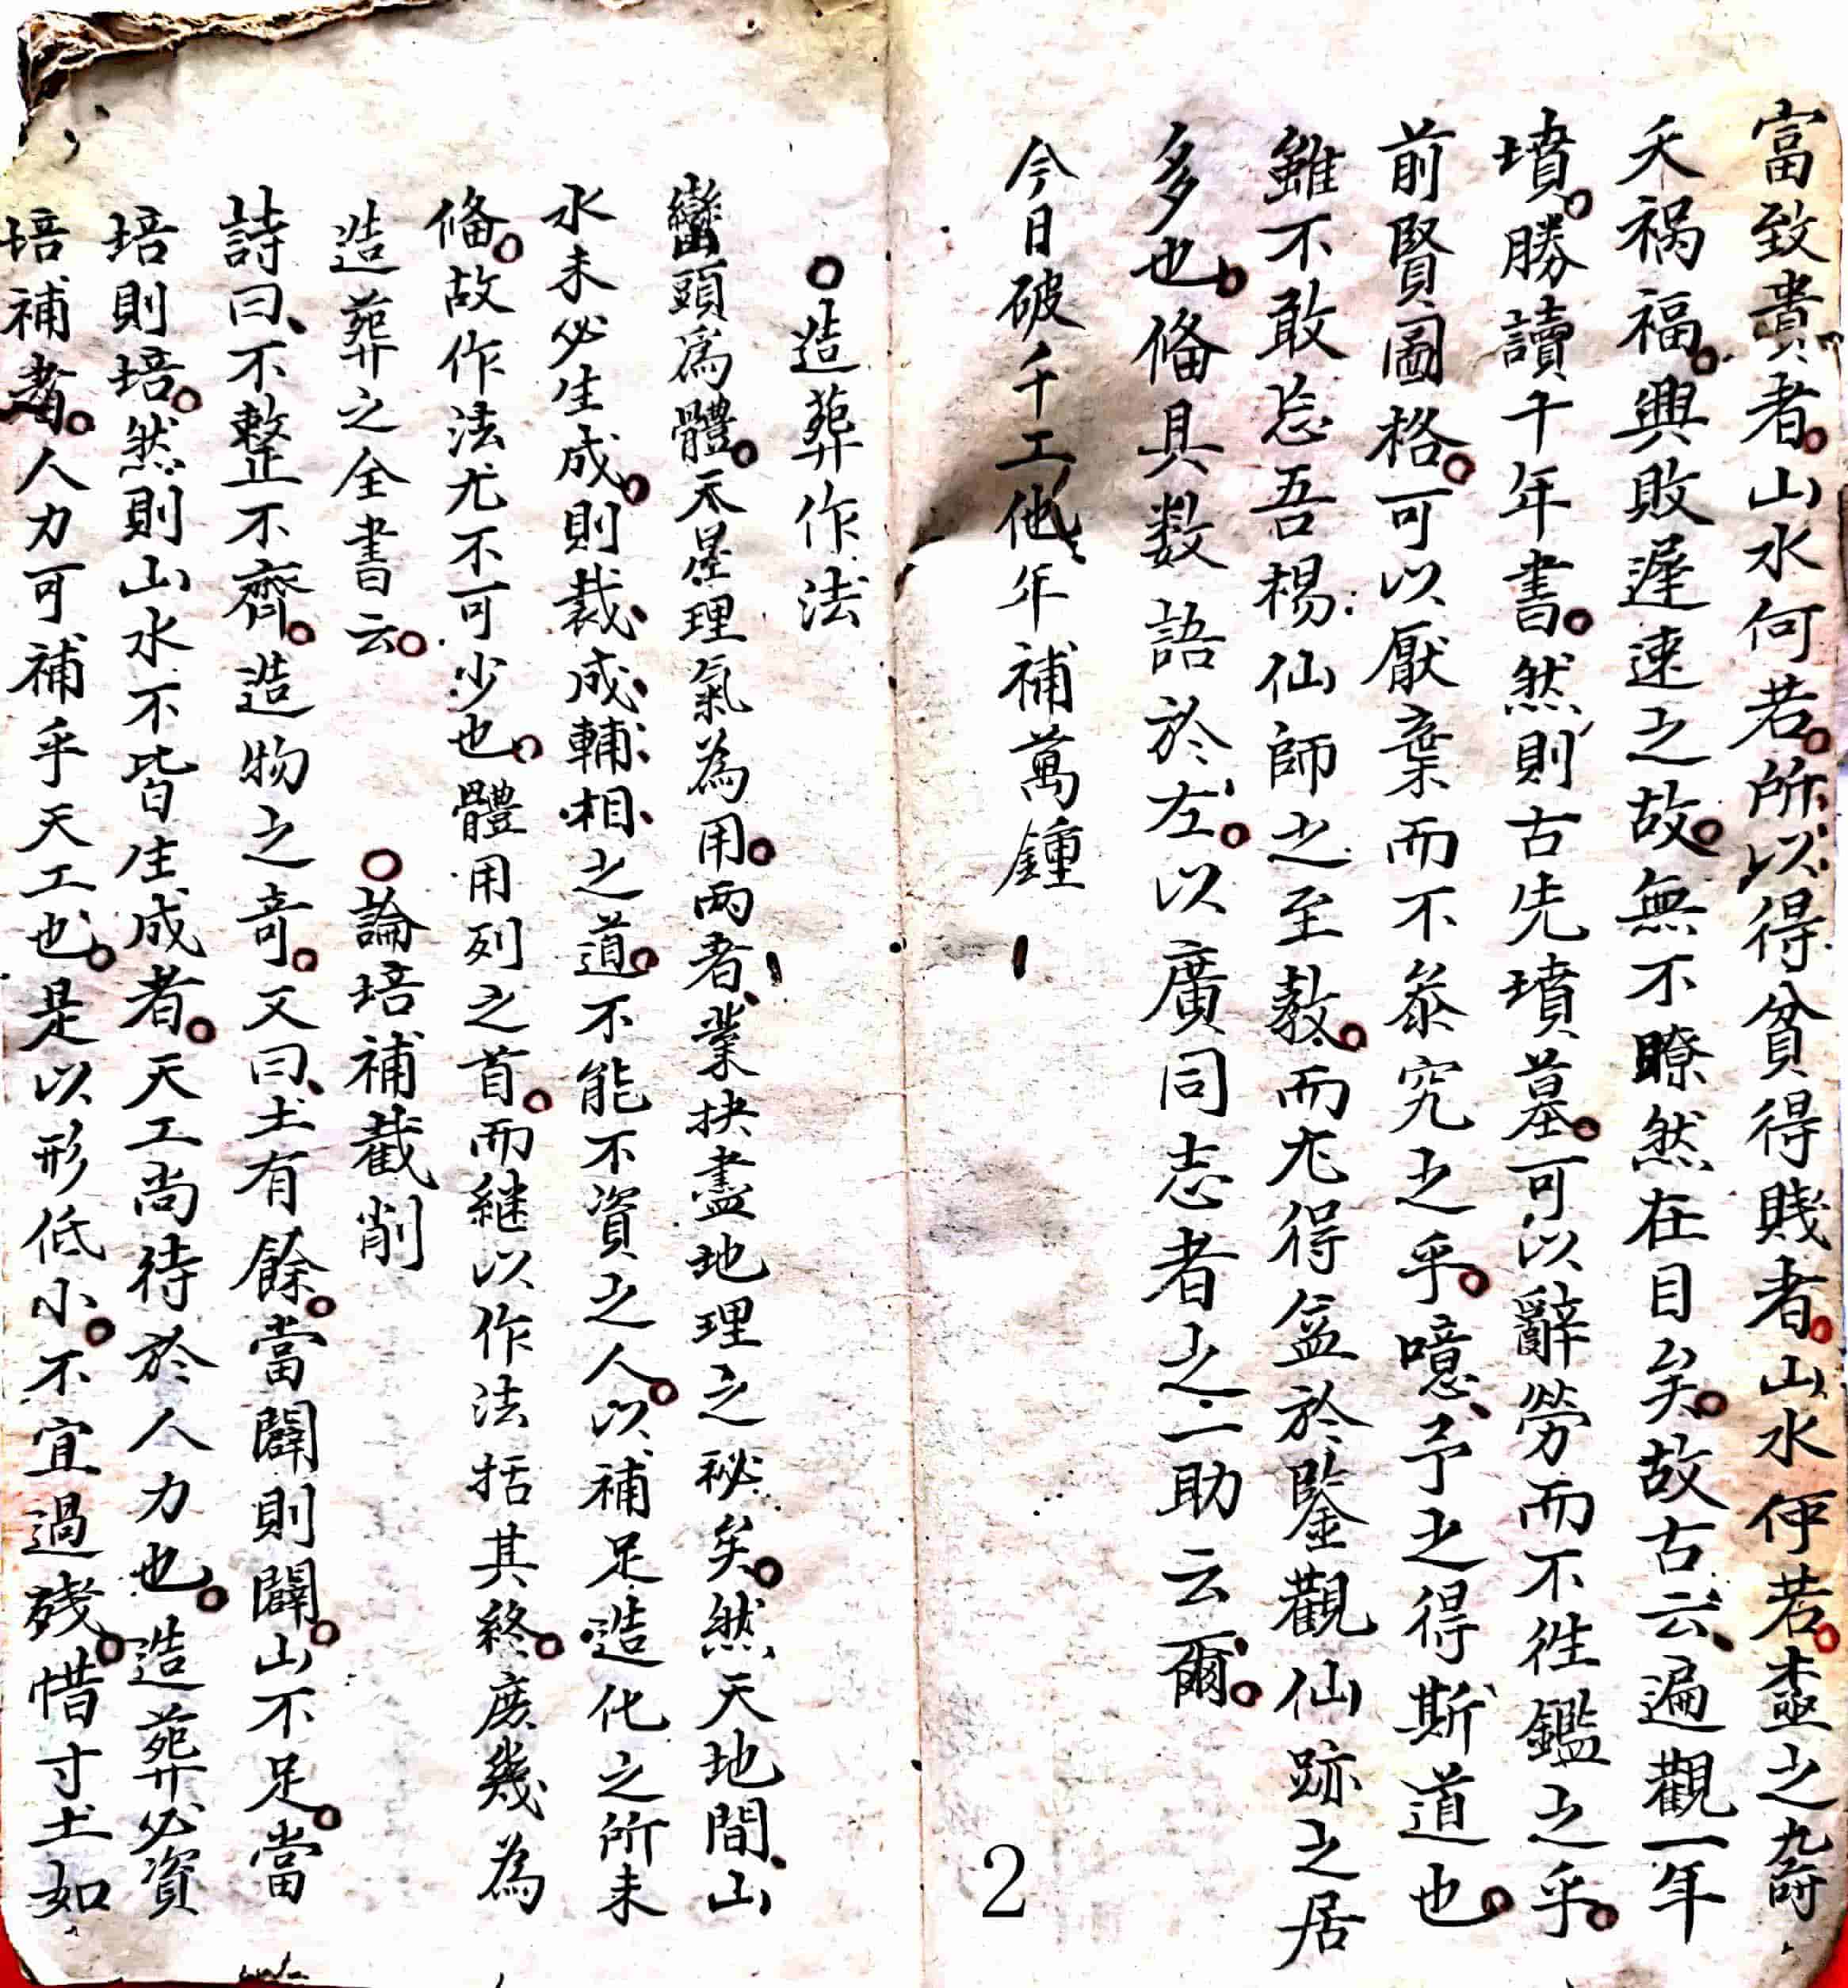 富致貴者。山水何若。所以得貧得賤者。山水何若。壺之九所
夭禍福。興敗遲速之故。無不瞭然在目矣。故古云、遍觀一年
墳。勝讀千年書。然則古先墳墓。可以辭勞而不往鑑之乎。
前賢圖格。可以厭棄而不叅究之乎。噫、予之得斯道也。
雖不敢忘吾楊仙師之至教。而尤得益於鑒觀仙跡之居
多也。俻具数語於左。以廣同志者之一助云爾。
今日破千工他年補萬鍾
2
○造葬作法
巒頭爲體。天星理氣為用。两者業抉盡地理之祕矣。然天地間、山
水未必生成。則裁成輔相之道。不能不資之人。以補足造化之所未
俻。故作法尤不可少也。體用列之首。而継以作法括其終。庶幾為
造葬之全書云。 ○論培補截削
詩曰、不整不齊。造物之竒。又曰、土有餘。當闢則闢。山不足。當
培則培。然則山水不皆生成者。天工尚待於人力也。造葬必資
培補者。人力可補乎天工也。是以形低小。不宜過殘。惜寸土如